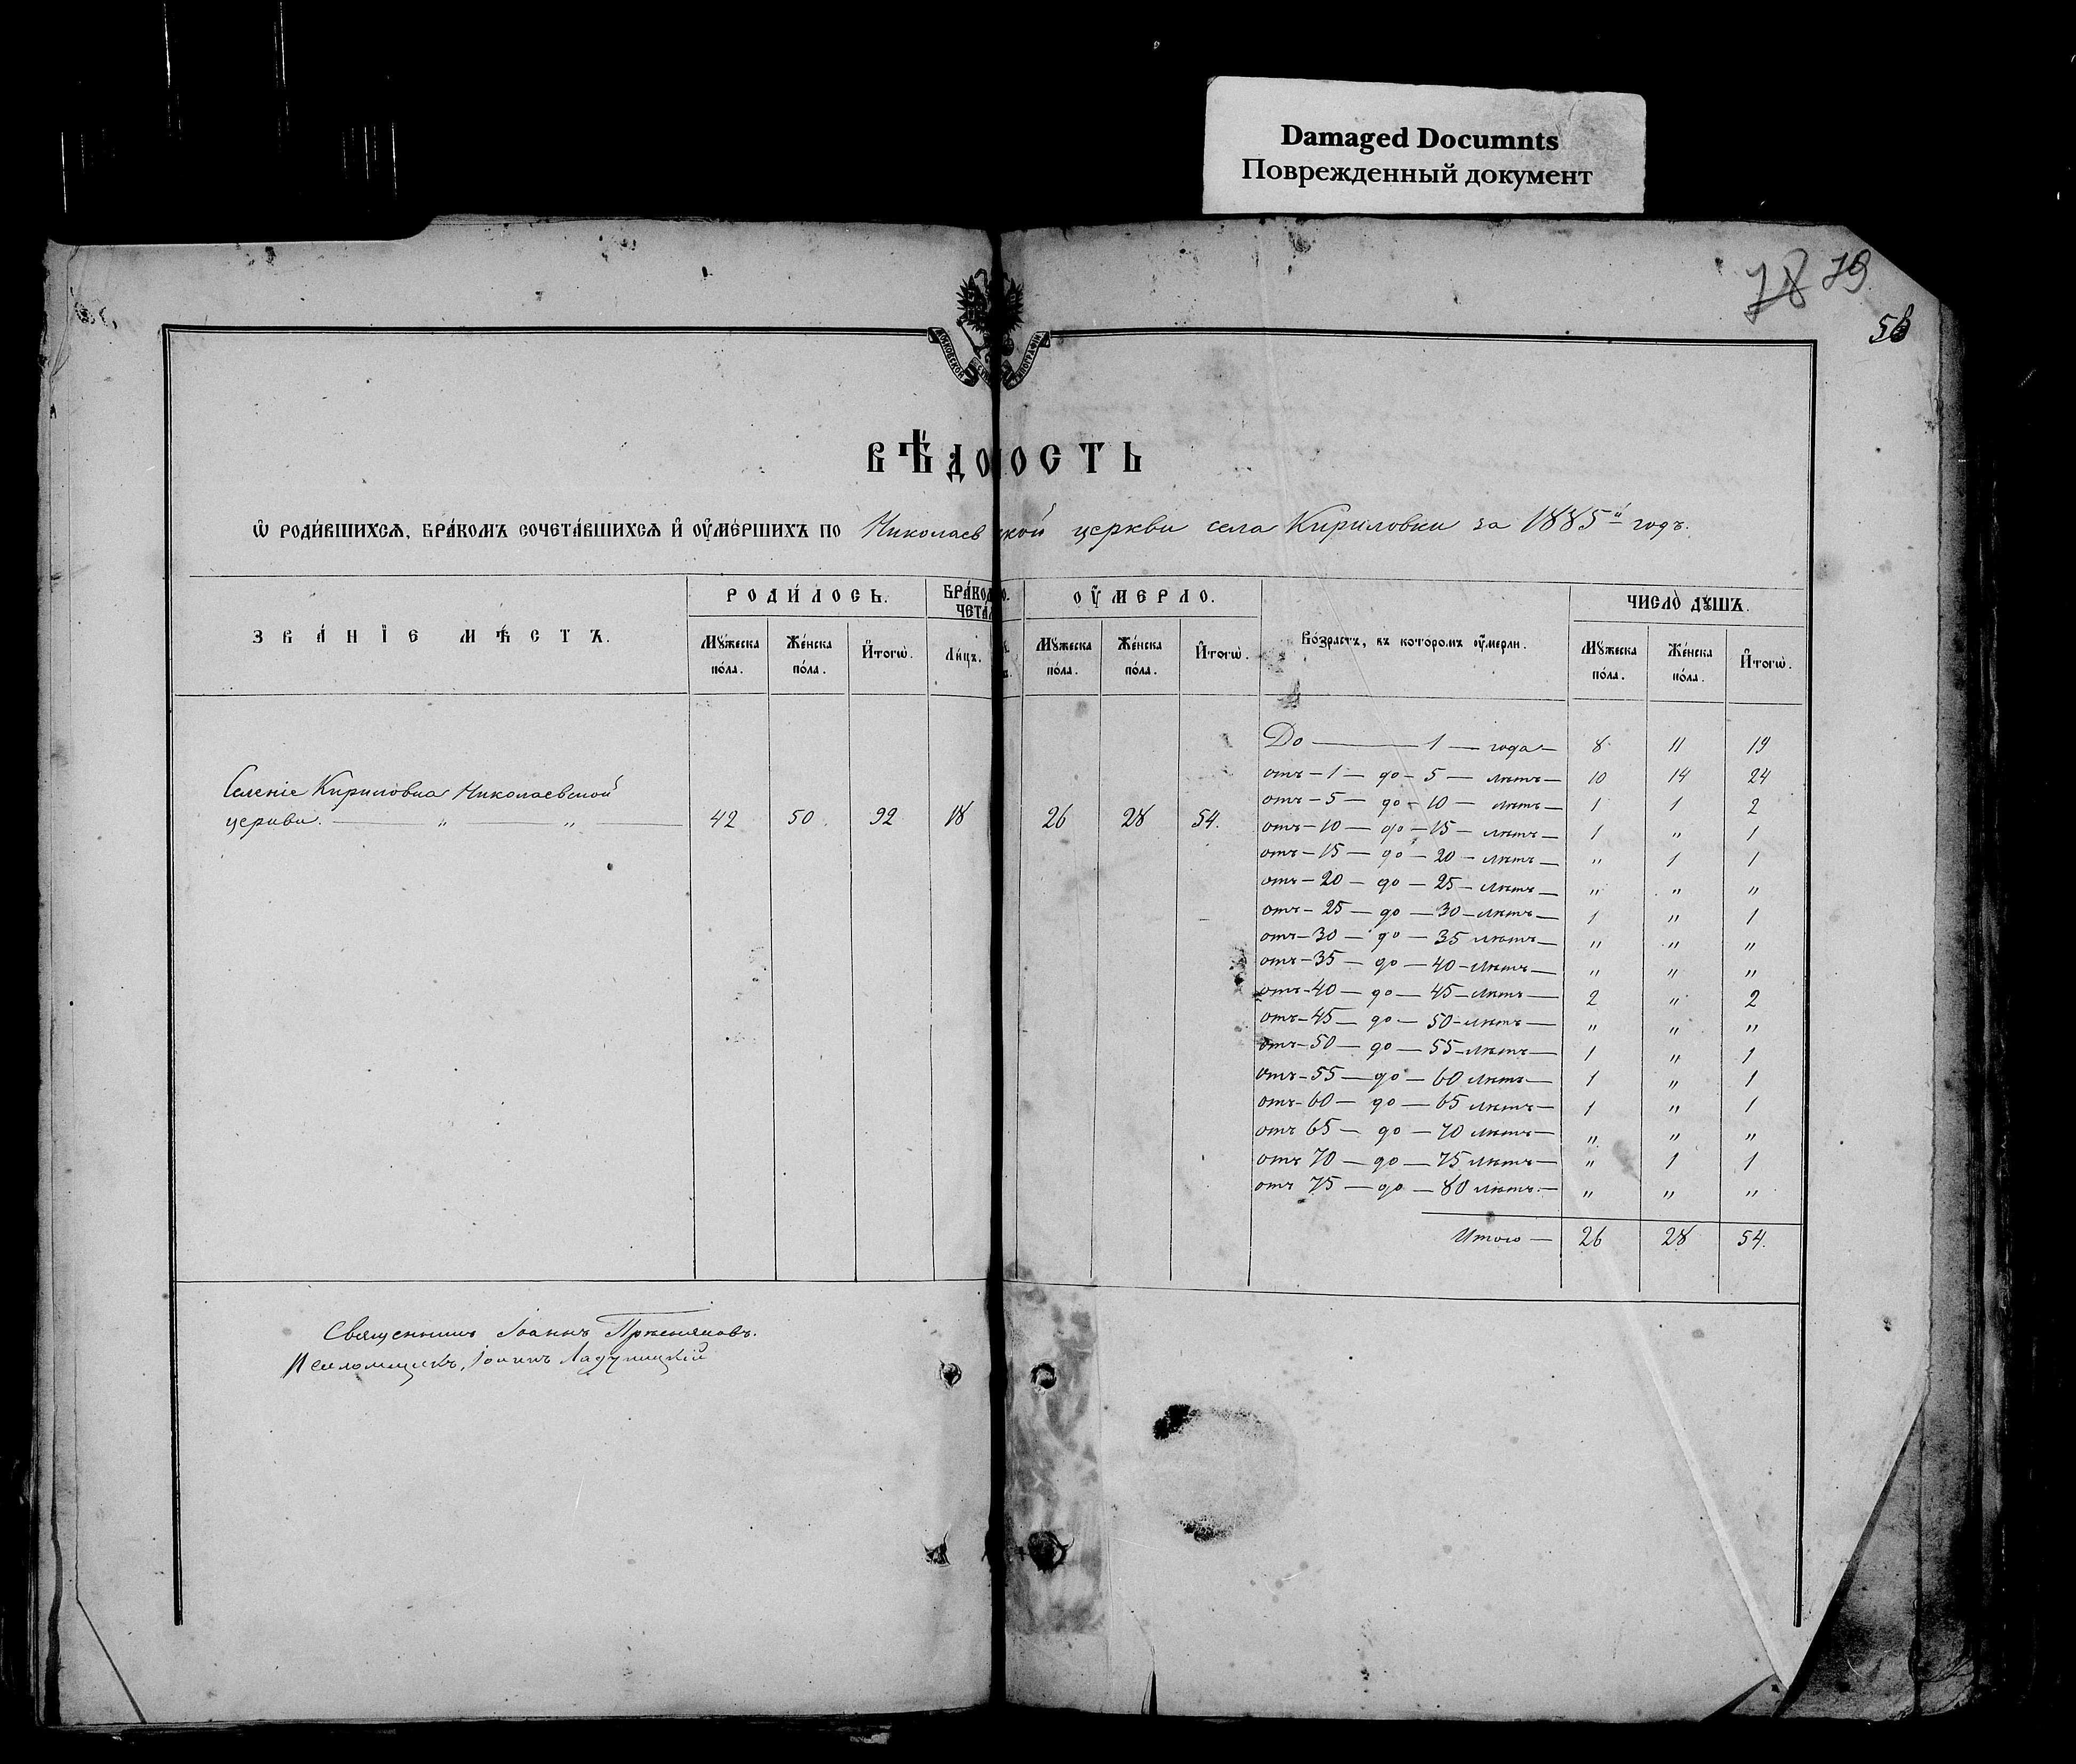 Damaged Documnts
Поврежденный документ
78 79
56
ВѢДОМОСТЬ
Ѡ РОДИ́ВШИХСѦ, БРА́КОМЪ СОЧЕТА́ВШИХСѦ И҆ ОУ҆МЕ́РШИХЪ ПО Николаевской церкви села Кириловки за 1885й годъ.
ЗВА́НІЕ МѢ́СТЪ.
РОДИ́ЛОСЬ.
БРА́КОМ СО.
ЧЕТА́
ОУ҆МЕРЛО.
Во́зрастъ, въ которомъ оу҆мерли.
ЧИСЛО̀ ДꙊШЪ.
Мꙋ́жеска по́ла. Же́нска по́ла. И҆тогѡ̀. Ли́цъ. Мꙋ́жеска по́ла. Же́нска по́ла. И҆тогѡ̀. Мꙋ́жеска по́ла. Же́нска по́ла. И҆тогѡ̀.
Селеніе Кириловка Николаевской
церкви. — „ — „ — 42 50 92 18 26 28 54.
До — 1 — года — 8 11 19
отъ — 1 — до — 5 — лѣтъ — 10 14 24
отъ — 5 — до — 10 — лѣтъ — 1 1 2
отъ — 10 — до — 15 — лѣтъ — 1 „ 1
отъ — 15 — до — 20 — лѣтъ — „ 1 1
отъ — 20 — до — 25 — лѣтъ — „ „ „
отъ — 25 — до — 30 — лѣтъ — 1 „ 1
отъ — 30 — до — 35 лѣтъ — „ „ „
отъ — 35 — до — 40 — лѣтъ — „ „ „
отъ — 40 — до — 45 — лѣтъ — 2 „ 2
отъ — 45 — до — 50 — лѣтъ — „ „ „
отъ — 50 — до — 55 — лѣтъ — 1 „ 1
отъ — 55 — до — 60 лѣтъ — 1 „ 1
отъ — 60 — до — 65 лѣтъ — 1 „ 1
отъ 65 — до — 70 лѣтъ — „ „ „
отъ 70 — до — 75 лѣтъ — „ 1 1
отъ 75 — до — 80 лѣтъ — „ „ „
Итого — 26 28 54.
Священникъ Іоаннъ
Псаломщикъ, Іоаннъ